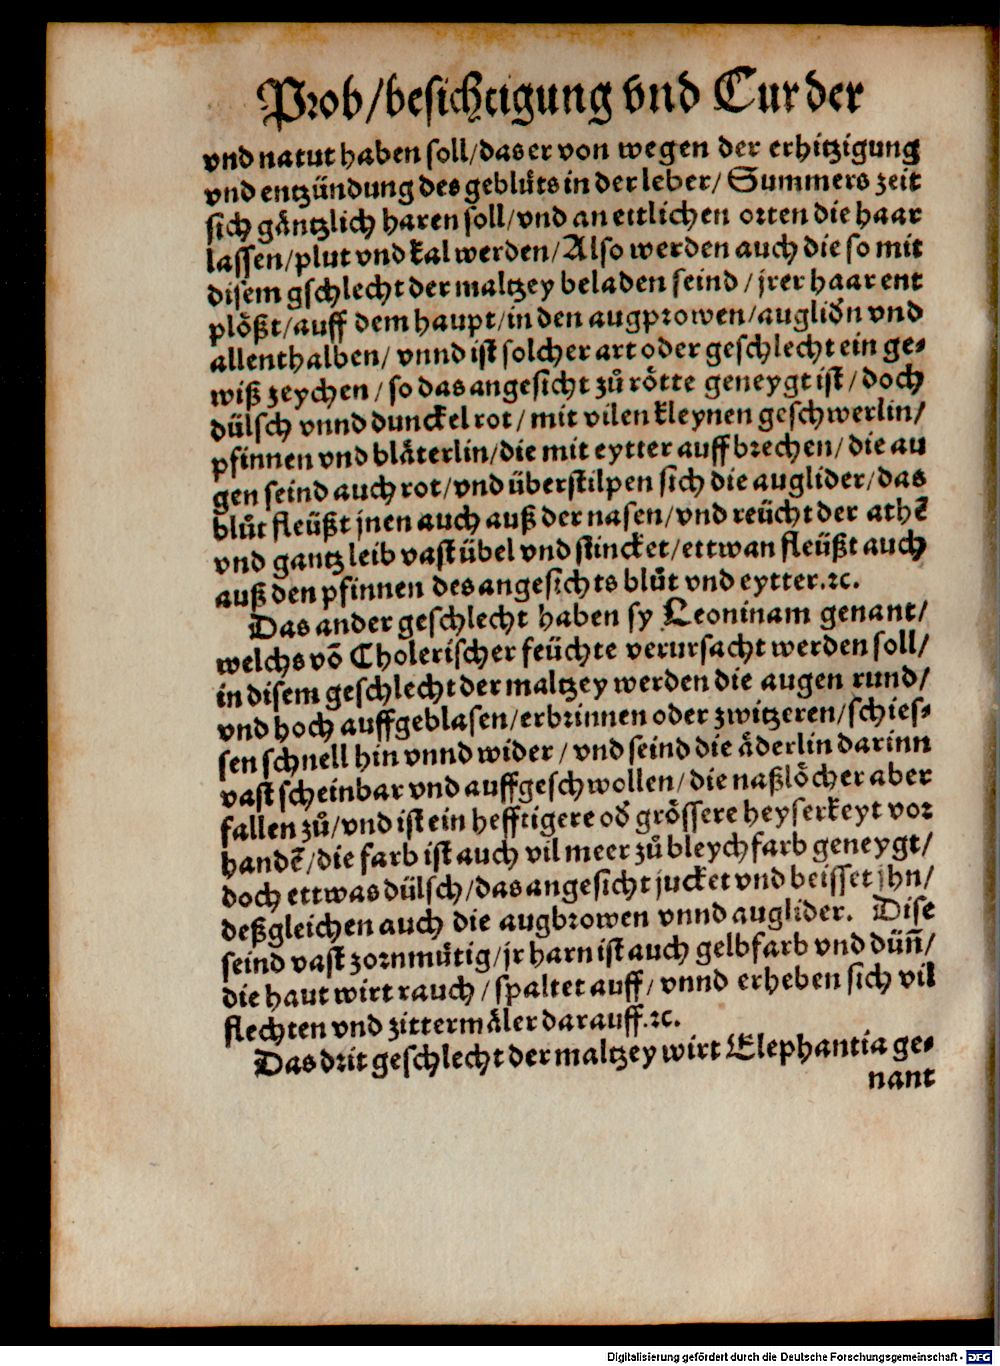 Prob/besichtigung vnd Cur der
vnd natut haben soll/das er von wegen der erhitzigung
vnd entzündung des geblůts in der leber/ Summers zeit
sich gåntzlich haren soll/vnd an ettlichen orten die haar
lassen/plut vnd kal werden/Also werden auch die so mit
disem gschlecht der maltzey beladen seind / jrer haar ent
plößt/auff dem haupt/in den augprowen/auglidn vnd
allenthalben/ vnnd ist solcher art oder geschlecht ein ge-
wiß zeychen / so das angesicht zů rötte geneygt ist / doch
dülsch vnnd dunckel rot / mit vilen kleynen geschwerlin/
pfinnen vnd blåterlin/die mit eytter auff brechen/ die au
gen seind auch rot/vnd überstilpen sich die auglider/das
blůt fleüßt jnen auch auß der nasen/vnd reücht der athē
vnd gantz leib vast übel vnd stincket/ettwan fleüßt auch
auß den pfinnen des angesichts blůt vnd eytter.ꝛc.
Das ander geschlecht haben sy Leoninam genant/
welchs vō Cholerischer feüchte verursacht werden soll/
in disem geschlecht der maltzey werden die augen rund/
vnd hoch auffgeblasen/erbrinnen oder zwitzeren/schies-
sen schnell hin vnnd wider / vnd seind die åderlin darinn
vast scheinbar vnd auffgeschwollen/die naßlöcher aber
fallen zů/vnd ist ein hefftigere od grössere heyserkeyt vor
handē/die farb ist auch vil meer zů bleychfarb geneygt/
doch ettwas dülsch/das angesicht jucket vnd beisset jhn/
deßgleichen auch die augbrowen vnnd auglider. Dise
seind vast zornmůtig/jr harn ist auch gelbfarb vnd düñ/
die haut wirt rauch / spaltet auff/ vnnd erheben sich vil
flechten vnd zittermåler darauff.ꝛc.
Das drit geschlecht der maltzey wirt Elephantia ge-
nant
Digitalisierung gefördert durch die Deutsche Forschungsgemeinschaft - DFG